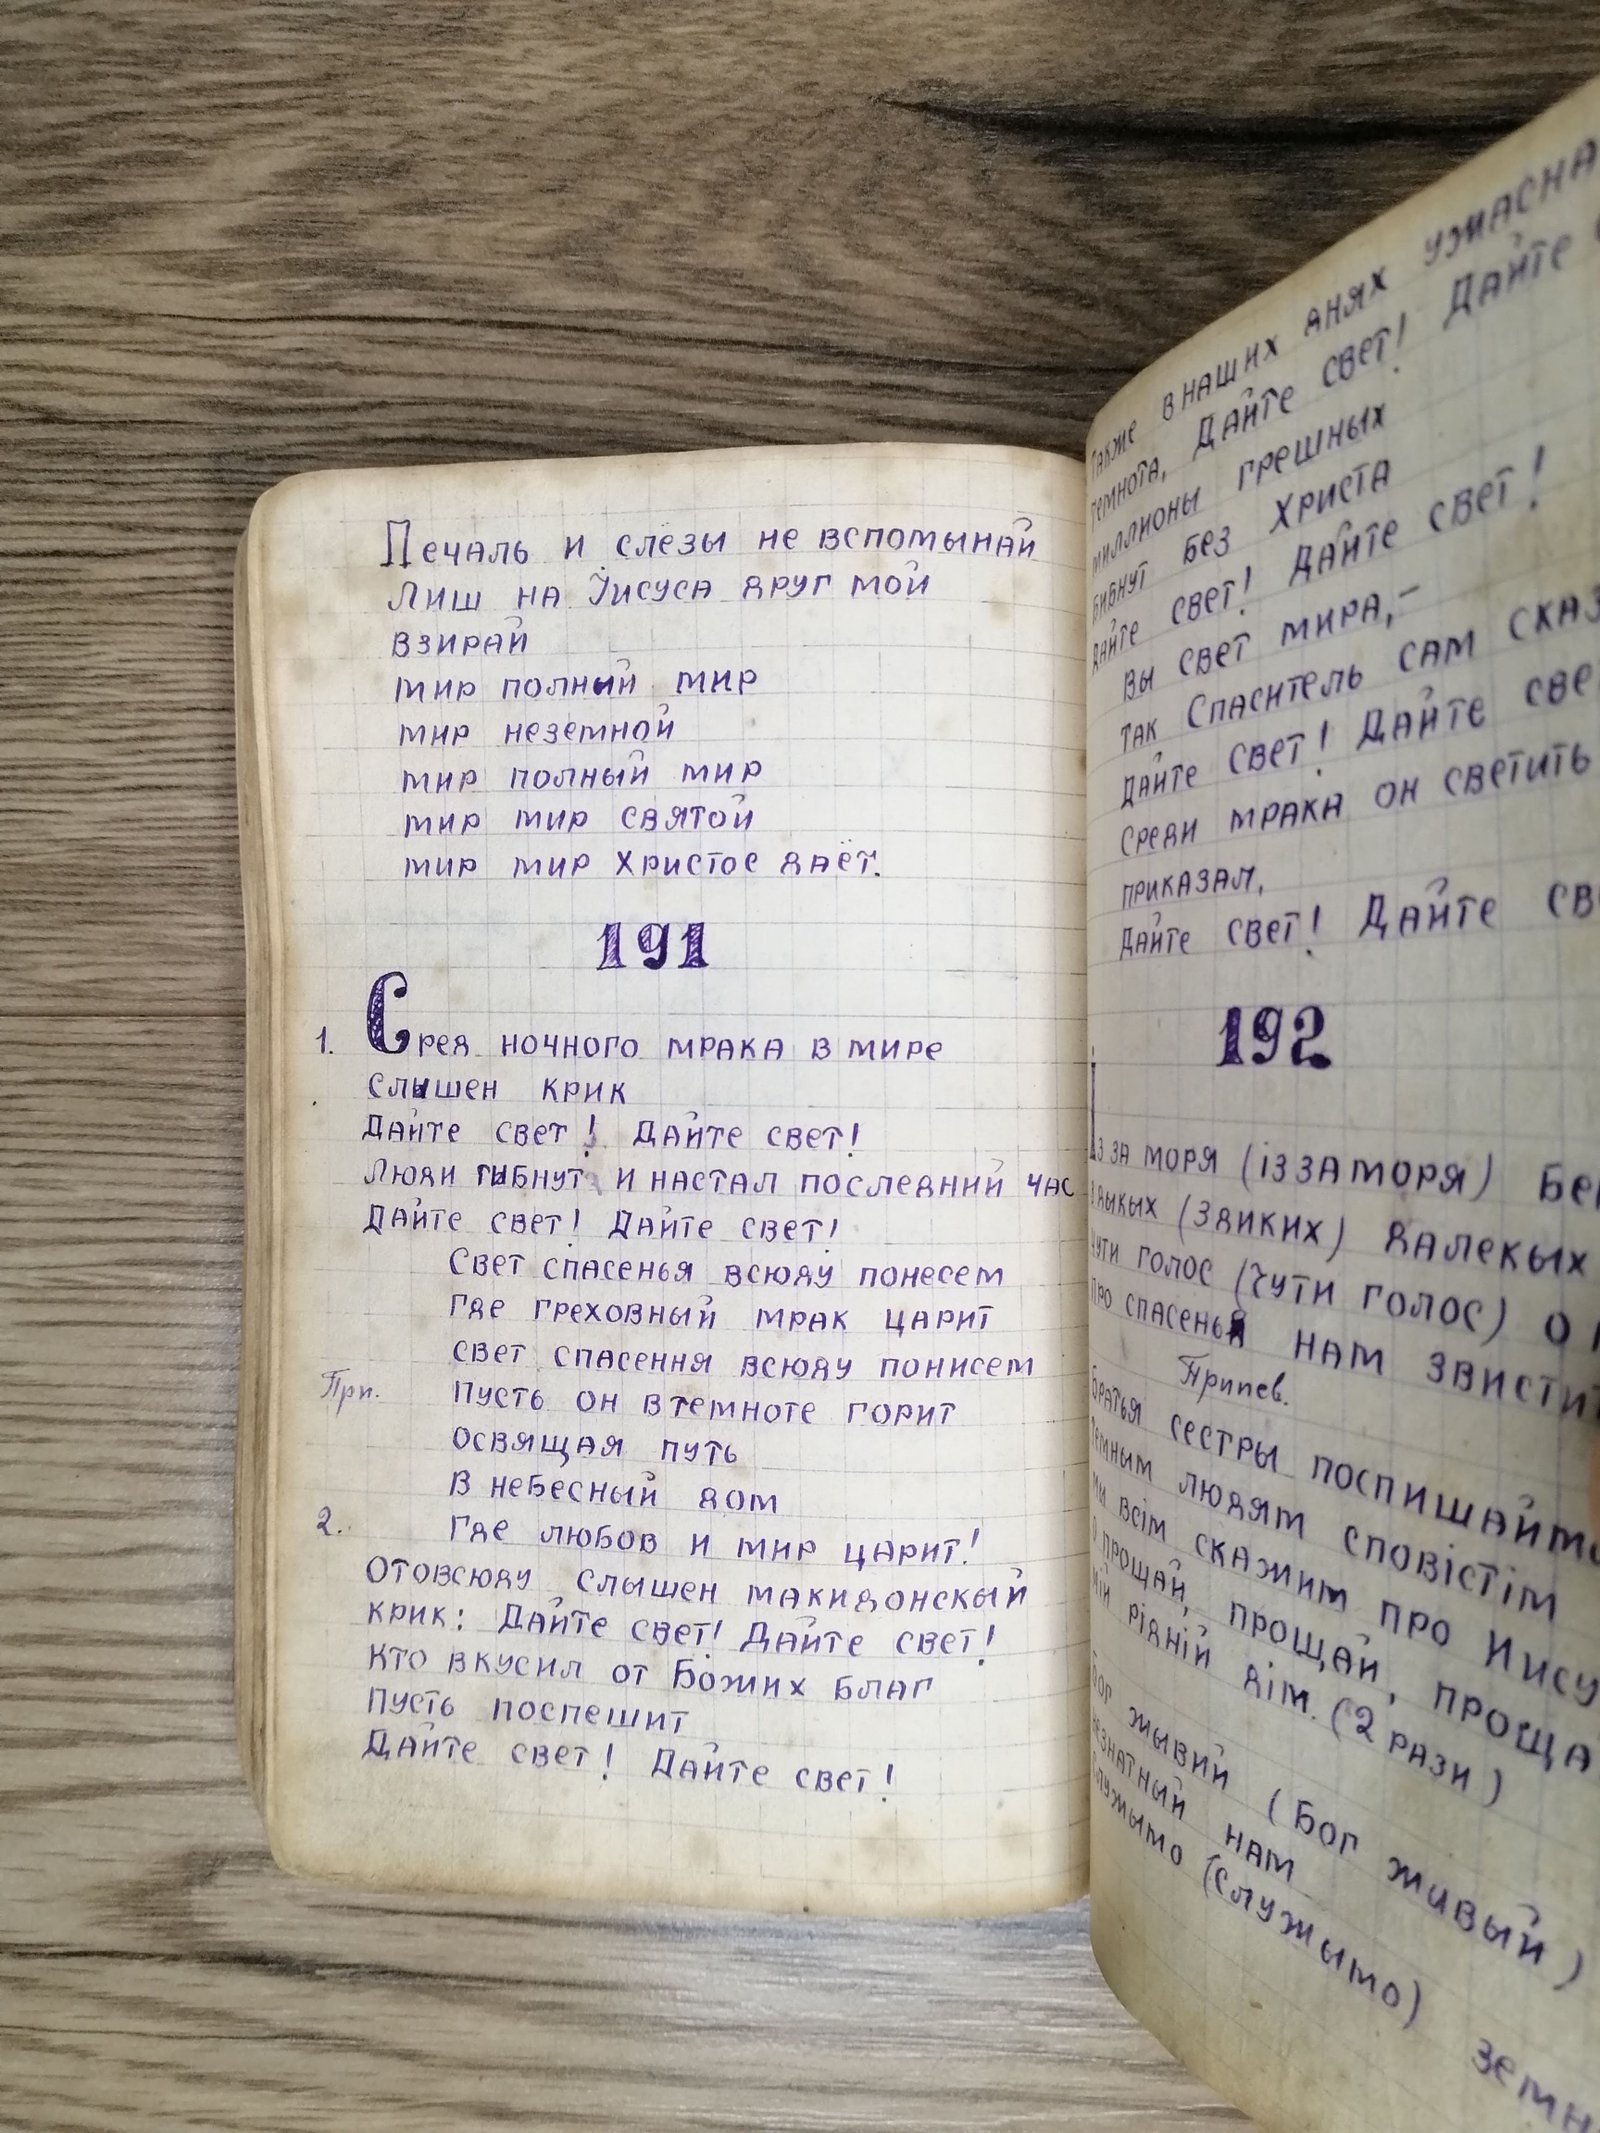 Печаль и слёзы не вспомынай
Лиш на Иисуса друг мой
взирай
мир полный мир
мир неземной
мир полный мир
мир мир святой
мир мир Христос даёт.
191
1. Сред ночного мрака в мире
слышен крик
Дайте свет! Дайте свет!
Люди гибнут и настал последний час
Дайте свет! Дайте свет!
Свет спасенья всюду понесем
Где греховный мрак царит
свет спасення всюду понисем
При. Пусть он в темноте горит
освящая путь
в небесный дом
2. Где любов и мир царит!
отовсюду слышен макидонскый
крик: Дайте свет! Дайте свет!
Кто вкусил от Божих благ
пусть поспешит
Дайте свет! Дайте свет!
также в наших днях ужасна
темнота, Дайте свет! Дайте
миллионы грешных
гибнут без Христа
дайте свет! дайте свет!
Вы свет мира,–
так Спаситель сам
дайте свет! Дайте
среди мрака он светить
приказал,
дайте свет! Дайте
192
Із за моря (із за моря)
здыкых (здиких) далекых
чути голос (чути голос) о
про спасенья нам
Припев.
братья сестры
темным людям сповістім
ми всім скажим про
о прощай, прощай,
мій рідній дім. (2 рази)
Бог жывий (Бог живый)
незнатный нам
служымо (служымо)